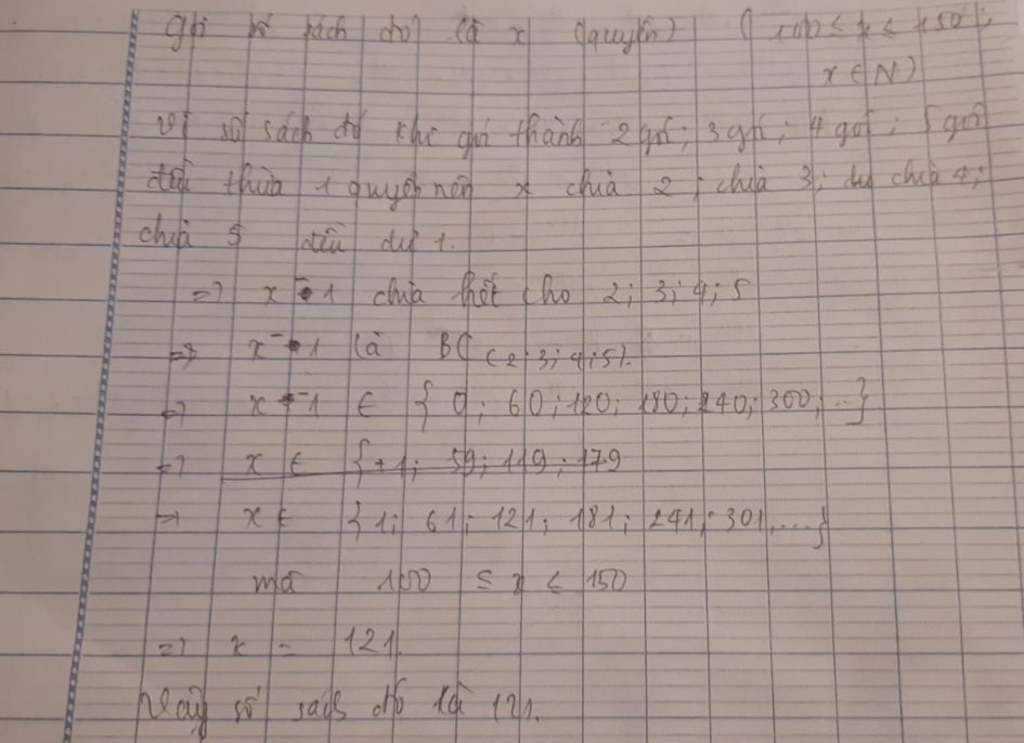 Gọi số sách đó là x (quyển) ( 100 ≤ x ≤ 150 ;
x ∈ N)
Vì số sách đó khi gói thành 2 gói ; 3 gói ; 4 gói ; 5 gói
đều thừa 1 quyển nên x chia 2 ; chia 3 ; chia 4 ;
chia 5 đều dư 1.
=> x - 1 chia hết cho 2 ; 3 ; 4 ; 5
=> x - 1 là BC (2 ; 3 ; 4 ; 5).
=> x - 1 ∈ { 0 ; 60 ; 120 ; 180 ; 240 ; 300 ; ... }
=> x ∈ { +1 ; 59 ; 119 ; 179
=> x ∈ { 1 ; 61 ; 121 ; 181 ; 241 ; 301 , ... }
mà 100 ≤ x ≤ 150
=> x = 121.
Vậy số sách đó là 121.